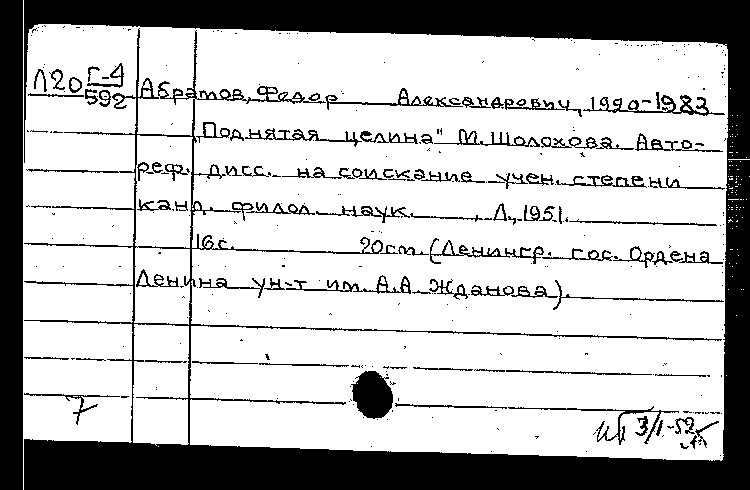 Л20 Г-4/592
Абрамов, Федор Александрович, 1920-1983
"Поднятая целина" М. Шолохова. Авто-
реф. дисс. на соискание учен. степени
канд. филол. наук. , Л., 1951.
16с. 20см. (Ленингр. гос. Ордена
Ленина ун-т им. А.А. Жданова).
7
3/I-52